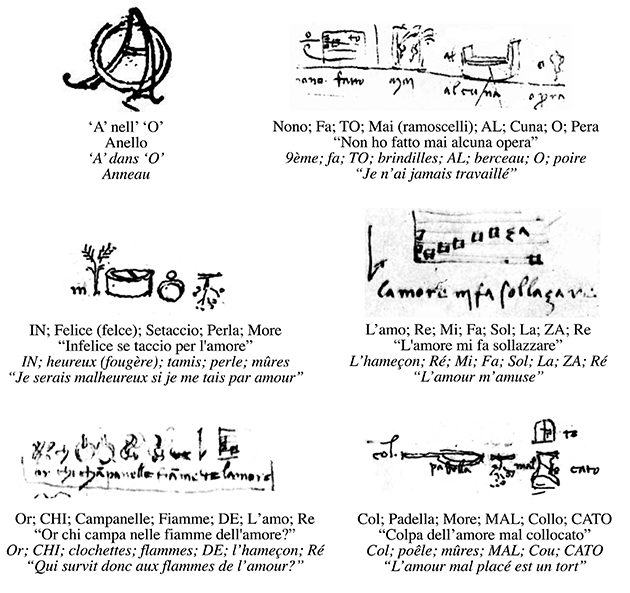 'A' nell' 'O'
Anello
'A' dans 'O'
Anneau
nono. fatto
al
alcuna
o pera
Nono; Fa; TO; Mai (ramoscelli); AL; Cuna; O; Pera
"Non ho fatto mai alcuna opera"
9ème; fa; TO; brindilles; AL; berceau; O; poire
"Je n'ai jamais travaillé"
IN; Felice (felce); Setaccio; Perla; More
"Infelice se taccio per l'amore"
IN; heureux (fougère); tamis; perle; mûres
"Je serais malheureux si je me tais par amour"
za
lamore mi fa sollazare
L'amo; Re; Mi; Fa; Sol; La; ZA; Re
"L'amore mi fa sollazzare"
L'hameçon; Ré; Mi; Fa; Sol; La; ZA; Ré
"L'amour m'amuse"
or chi
lamore
Or; CHI; Campanelle; Fiamme; DE; L'amo; Re
"Or chi campa nelle fiamme dell'amore?"
Or; CHI; clochettes; flammes; DE; l'hameçon; Ré
"Qui survit donc aux flammes de l'amour?"
to
col.
padella
mal
cato
Col; Padella; More; MAL; Collo; CATO
"Colpa dell'amore mal collocato"
Col; poêle; mûres; MAL; Cou; CATO
"L'amour mal placé est un tort"